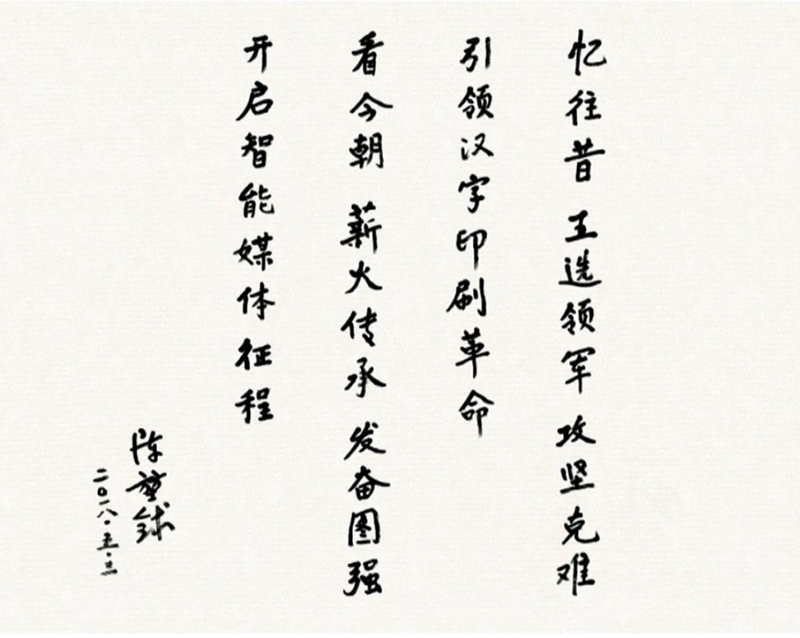 忆往昔 王选领军 攻坚克难
引领汉字印刷革命
看今朝 薪火传承 发奋图强
开启智能媒体征程
陈堃銶
二〇一八·五·三